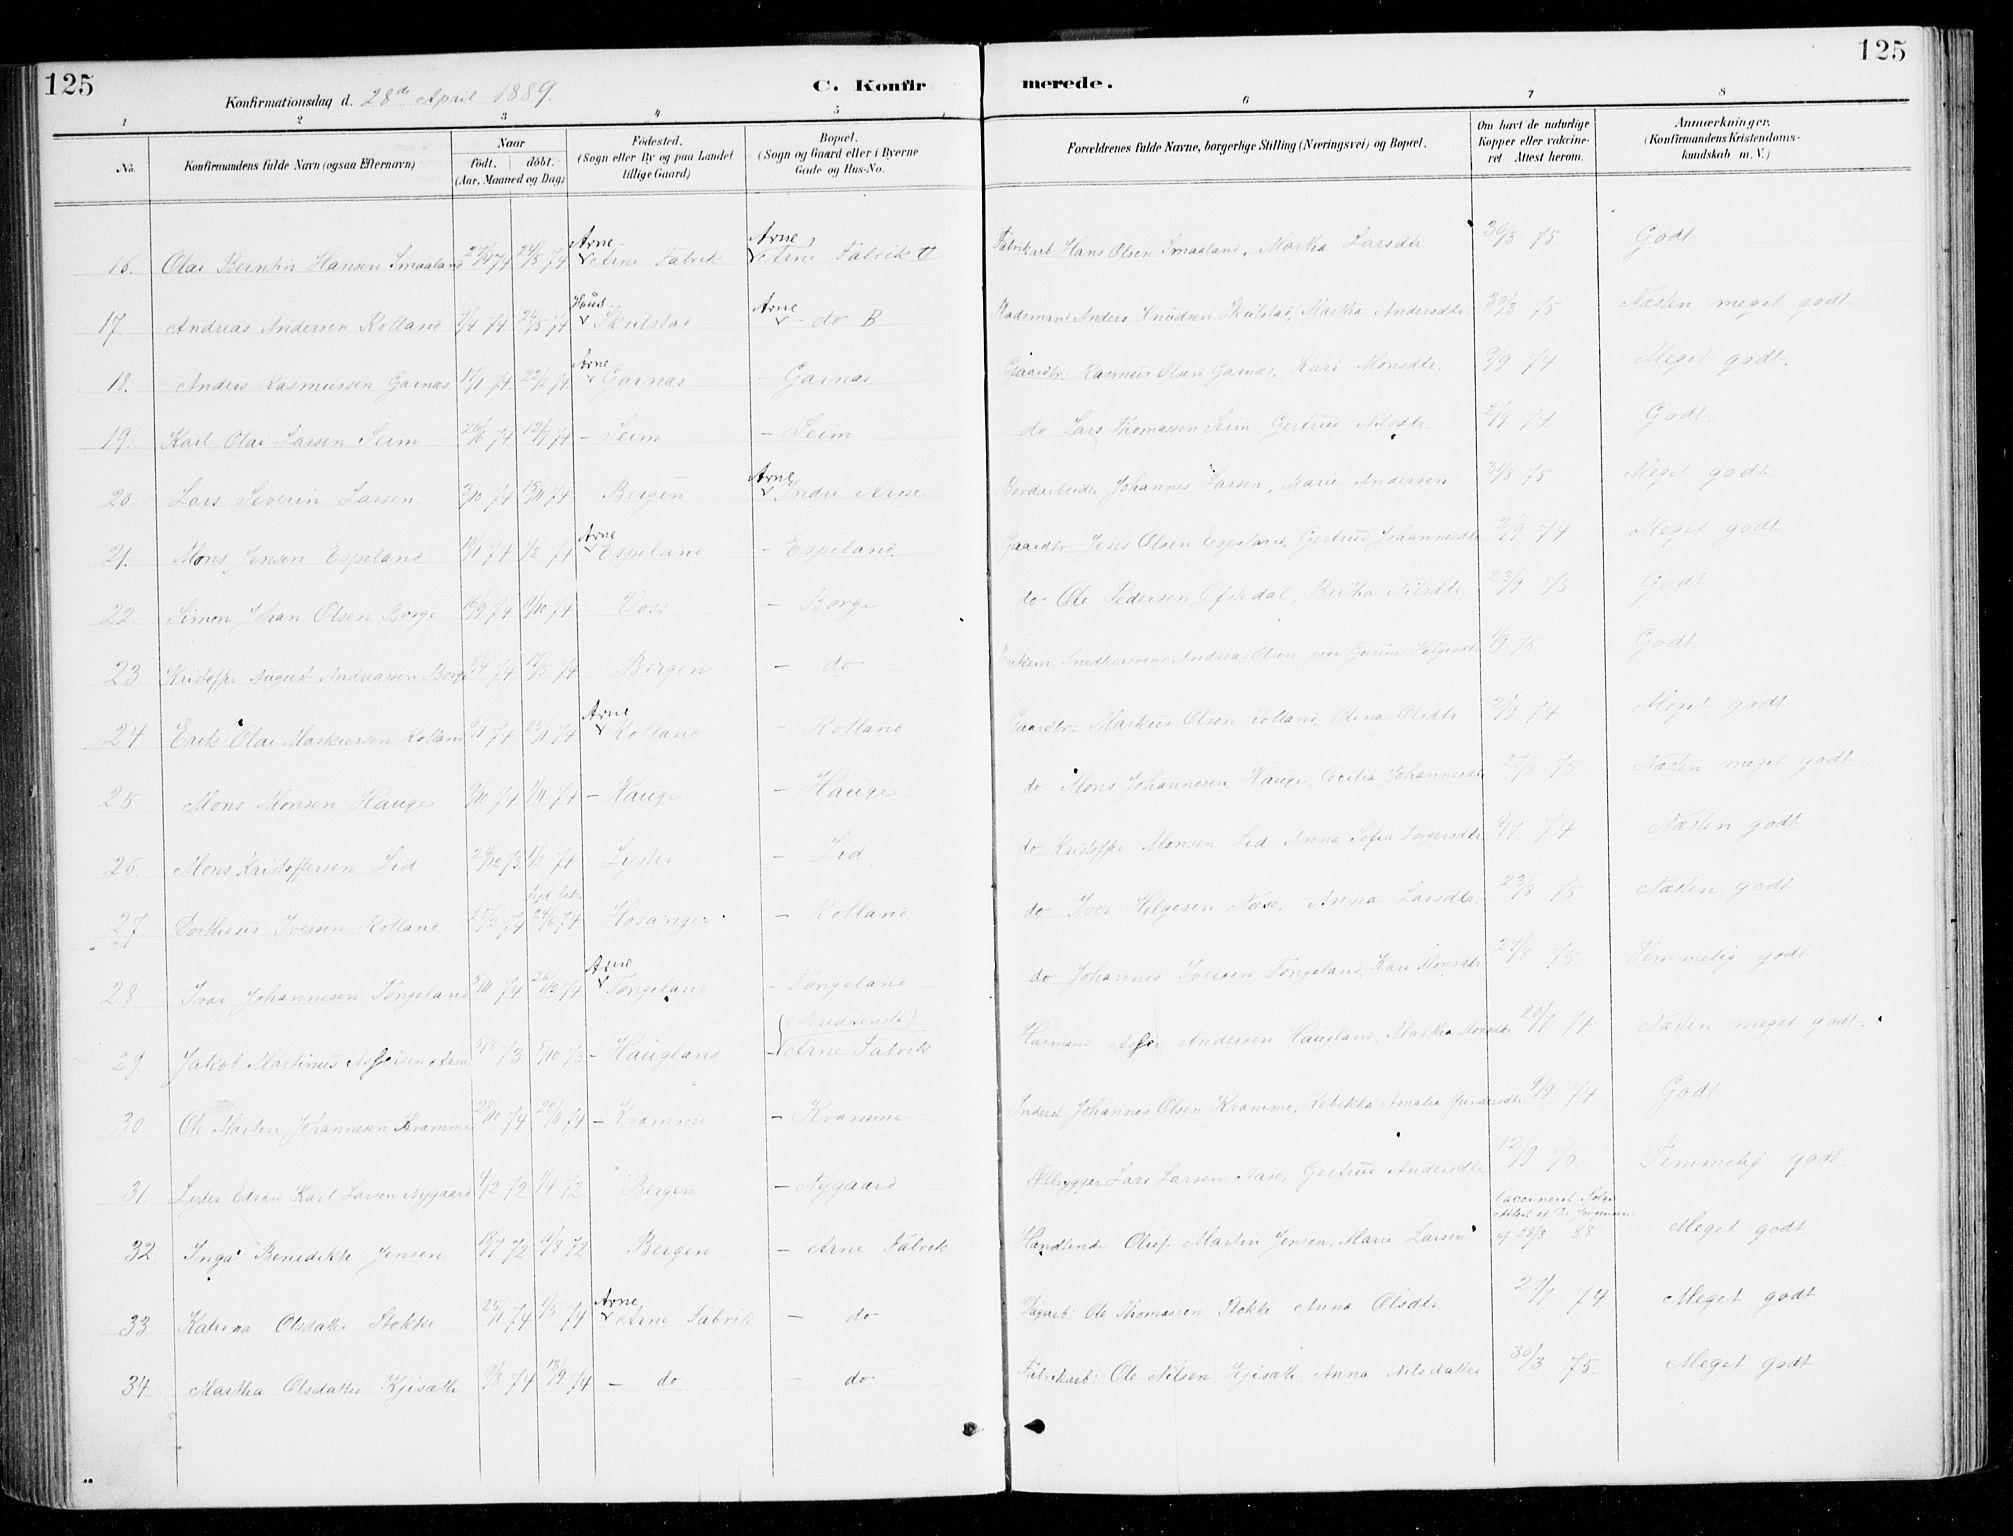 125
C. Konfir merede.
125
Konfirmationsdag d. 28de April 1889.
1 2 3 4 5 6 7 8
No. Konfirmandens fulde Navn (ogsaa Efternavn) Naar födt. döbt. (Aar, Maaned og Dag) Födested. (Sogn eller By og paa Landet tillige Gaard) Bopæl. (Sogn og Gaard eller i Byerne Gade og Hus-No. Forældrenes fulde Navne, borgerlige Stilling (Næringsvei) og Bopæl. Om havt de naturlige Kopper eller vakcineret Attest herom. Anmærkninger. (Konfirmandens Kristendomskundskab m. V.)
16. Olai Berntin Hansen Smaaland 27/4 74 24/5 74 Arne Arne Fabrik Arne Arne Fabrik Fabrikarb Hans Olsen Smaaland, Martha Larsdtr 30/3 75 Godt
17. Andreas Andersen Rolland 7/4 74 24/5 74 Skulstad Arne - do B Pladsmand Anders Knudsen Skulstad, Martha Andersdtr. 30/3 75 Næsten meget godt
18. Anders Rasmussen Garnæs 17/1 74 22/2 74 Arne Garnæs - Garnæs Gaardbr. Rasmus Olsen Garnæs, Kari Monsdtr. 2/9 74 Meget godt
19. Karl Olai Larsen Seim 26/6 74 12/7 74 - Seim - Seim do Lars Thomassen Seim Gertrud Nilsdtr. 2/9 74 Godt
20 Lars Severin Larsen 3/10 74 15/11 74 Bergen Arne Indre Arne Bordarbeider Johannes Larsen, Marie Andersen 31/8 75 Meget godt
21. Mons Jensen Espeland 10/1 74 1/2 74 Arne Espeland - Espeland Gaardbr Jens Olsen Espeland, Gertrud Johannesdtr 2/9 74 Meget godt
22. Simon Johan Olsen Borge 16/9 74 11/10 74 Voss - Borge do Ole Pedersen Ofstedal, Britha Nilsdtr 23/9 75 Godt
23. Kristoffer August Andreassen Borge 5/4 74 17/5 74 Bergen - do Snedkersvend Andreas Olsen, Helgesdtr 1/9 76 Godt
24 Erik Olai Markussen Rolland 6/1 74 25/1 74 Arne Rolland - Rolland Gaardbr. Markus Olsen Rolland, Olina Olsdtr 2/9 74 Meget godt
25. Mons Monsen Hauge 9/10 74 1/11 74 - Hauge - Hauge do Mons Johannesen Hauge, Cecilia Johannesdtr 27/8 75 Næsten meget godt
26. Mons Kristoffersen Lid 24/12 73 1/2 74 Lyster - Lid do Kristoffer Monsen Lid, Anna Sofia Torgersdtr 4/7 74 Næsten godt
27. Iversen Rolland 25/2 74 24/6 74 Hosanger - Rolland do Iver Helgesen Næse, Anna Larsdtr. 23/8 75 Næsten godt
28 Ivar Johannesen Tongeland 5/11 74 26/12 74 Arne Tongeland - Tongeland do Johannes Iversen Tongeland, Kari Monsdtr 27/8 75 Temmelig godt
29 Jakob Martinus Arne 5/8 73 5/10 73 - Haugland - Arne Fabrik Husmand Andersen Haugland, Martha Monsdtr 20/7 74 Næsten meget godt
30 Ole Martin Johannesen Kvamme 28/10 74 29/11 74 - Kvamme - Kvamme Inderst Johannes Olsen Kvamme, Rebekka Amalia Gundersdtr 9/9 74 Godt
31. Lyder Edvard Karl Larsen Nygaard 4/2 72 1/4 72 Bergen - Nygaard Ølbrygger Lars Larsen Næse, Gertrud Andersdtr 12/9 76 Temmelig godt
32. Inga Benedikte Jensen 72 11/8 72 Bergen - Arne Fabrik Handlende Oluf Martin Jensen, Marie Larsen vaccineret Attest af Dr Jørgensen af 23/3 88 Meget godt
33 Katrina Olsdatter Stokke 25/1 74 1/3 74 Arne Arne Fabrik - do Dagarb: Ole Thomassen Stokke Anna Olsdtr 27/7 74 Meget godt
34. Martha Olsdatter Kjisæth 9/8 74 13/9 74 - do - do Fabrikarb: Ole Nilsen Kjisæth, Anna Nilsdatter 30/3 75. Meget godt